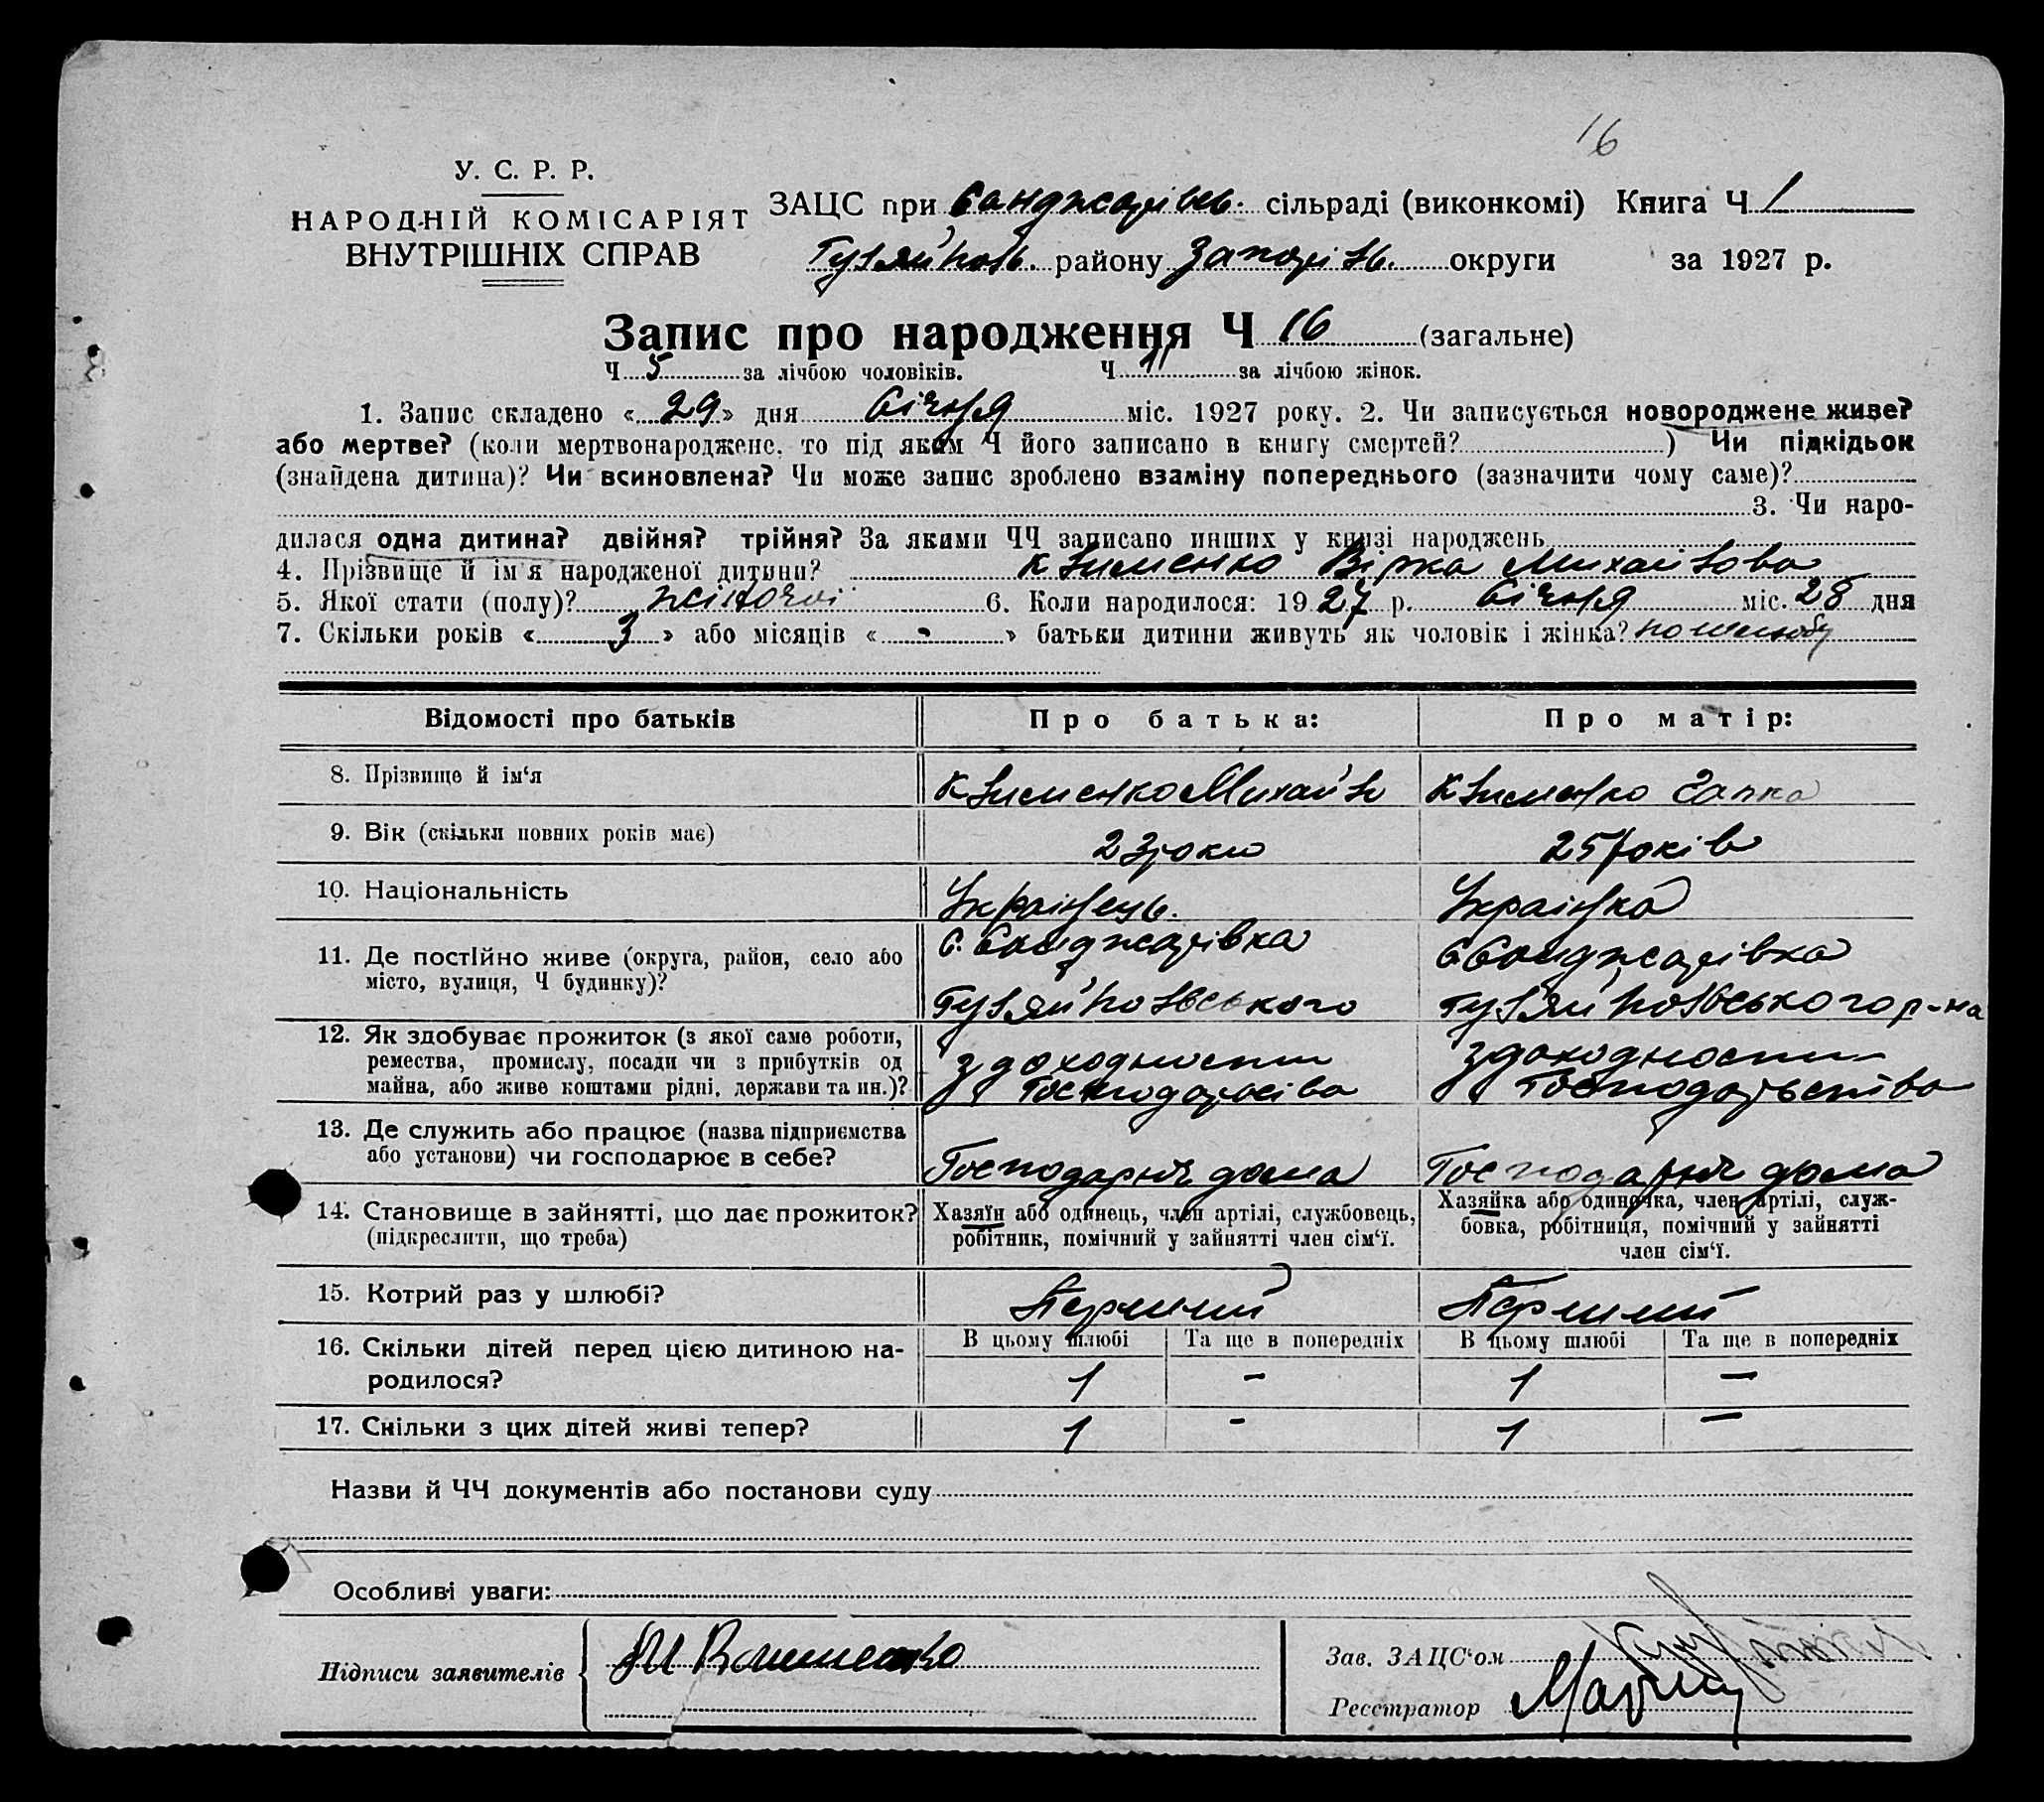 16
У. С. Р. Р.
НАРОДНІЙ КОМІСАРІЯТ
ВНУТРІШНІХ СПРАВ
ЗАЦС при Санджарівс. сільраді (виконкомі) Книга Ч 1
Гуляйпол. району Запоріж. округи за 1927 р.
Запис про народження Ч 16 (загальне)
Ч 5 за лічбою чоловіків. Ч 11 за лічбою жінок.
1. Запис складено « 29 » дня Січня міс. 1927 року. 2. Чи записується новороджене живе?
або мертве? (коли мертвонароджене, то під яким Ч його записано в книгу смертей? ) Чи підкідьок
(знайдена дитина)? Чи всиновлена? Чи може запис зроблено взаміну попереднього (зазначити чому саме)?
3. Чи наро-
дилася одна дитина? двійня? трійня? За якими ЧЧ записано инших у книзі народжень
4. Прізвище й ім'я народженої дитини? Клименко Вірка Михайлова
5. Якої стати (полу)? жіночої 6. Коли народилося: 1927 р. Січня міс. 28 дня
7. Скільки років « 3 » або місяців « - » батьки дитини живуть як чоловік і жінка? по шлюбу
Відомості про батьків
Про батька:
Про матір:
8. Прізвище й ім'я
Клименко Михайло
Клименко Гапка
9. Вік (скільки повних років має)
23 роки
25 років
10. Національність
Українець.
Українка
11. Де постійно живе (округа, район, село або
місто, вулиця, Ч будинку)?
с. Санджарівка
Гуляйпольського
с Санджарівка
Гуляйпольського р-на
12. Як здобуває прожиток (з якої саме роботи,
ремества, промислу, посади чи з прибутків од
майна, або живе коштами рідні, держави та ин.)?
З доходности
Господарсіва
З доходности
Господарьства
13. Де служить або працює (назва підприємства
або установи) чи господарює в себе?
Господарює дома
Господарює дома
14. Становище в зайнятті, що дає прожиток?
(підкреслити, що треба)
Хазяїн або одинець, член артілі, службовець,
робітник, помічний у зайнятті член сім'ї.
Хазяйка або одиночка, член артілі, служ-
бовка, робітниця, помічний у зайнятті
член сім'ї.
15. Котрий раз у шлюбі?
Перший
Перший
16. Скільки дітей перед цією дитиною на-
родилося?
В цьому шлюбі Та ще в попередніх В цьому шлюбі Та ще в попередніх
1 - 1 -
17. Скільки з цих дітей живі тепер?
1 - 1 -
Назви й ЧЧ документів або постанови суду
Особливі уваги:
Підписи заявителів
Зав. ЗАЦС'ом
Реєстратор